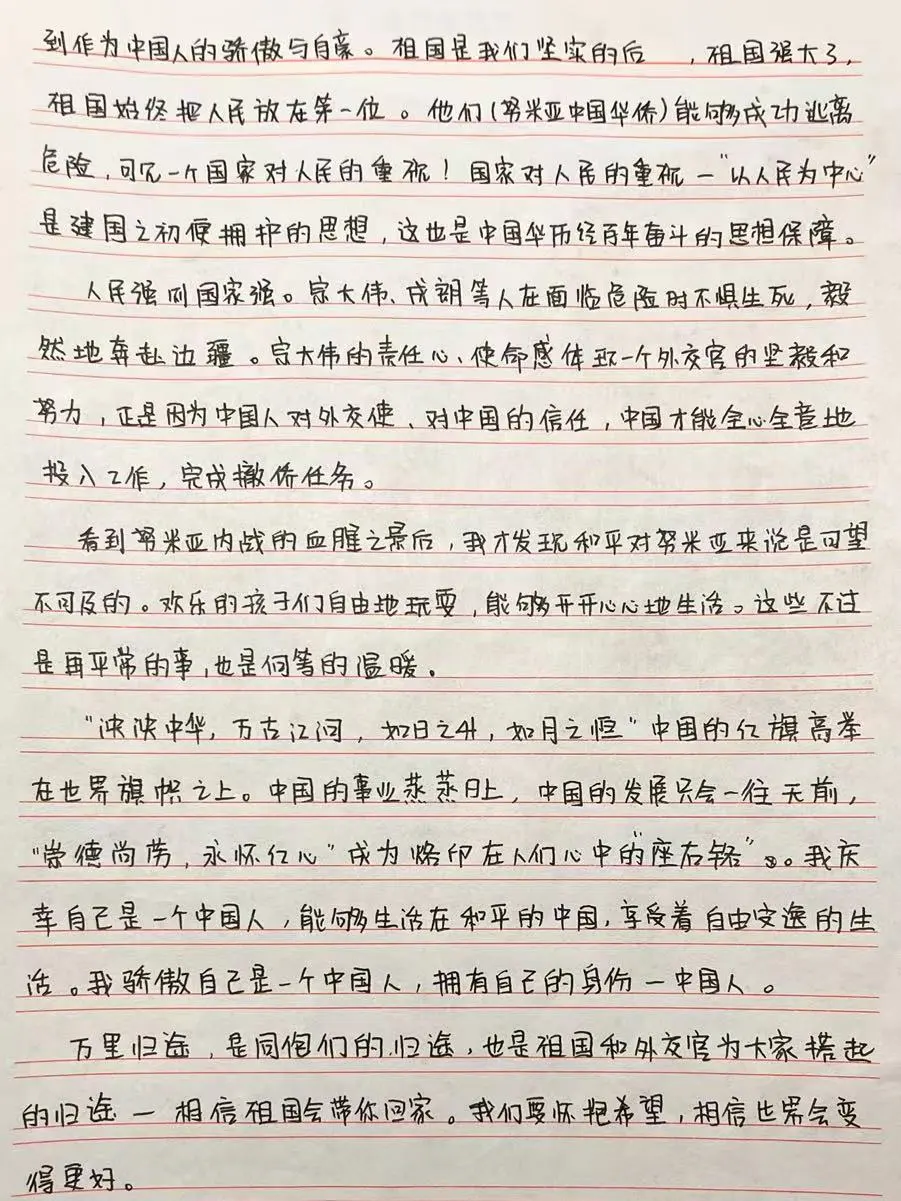 到作为中国人的骄傲与自豪。祖国是我们坚实的后 ，祖国强大了，
祖国始终把人民放在第一位。他们(努米亚中国华侨)能够成功逃离
危险，可见一个国家对人民的重视！国家对人民的重视一"以人民为中心"
是建国之初便拥护的思想，这也是中国华历经百年奋斗的思想保障。
人民强则国家强。宗大伟、成朗等人在面临危险时不惧生死，毅
然地奔赴边疆。宗大伟的责任心、使命感体现一个外交官的坚毅和
努力，正是因为中国人对外交使、对中国的信任，中国才能全心全意地
投入工作，完成撤侨任务。
看到努米亚内战的血腥之景后，我才发现和平对努米亚来说是可望
不可及的。欢乐的孩子们自由地玩耍，能够开开心心地生活。这些不过
是再平常的事，也是何等的温暖。
"泱泱中华，万古江河，如日之升，如月之恒"中国的红旗高举
在世界旗帜之上。中国的事业蒸蒸日上，中国的发展只会一往无前，
"崇德尚劳，永怀红心"成为烙印在人们心中的"座右铭"。我庆
幸自己是一个中国人，能够生活在和平的中国，享受着自由安逸的生
活。我骄傲自己是一个中国人，拥有自己的身份一中国人。
万里归途，是同胞们的归途，也是祖国和外交官为大家搭起
的归途一相信祖国会带你回家。我们要怀抱希望，相信世界会变
得更好。